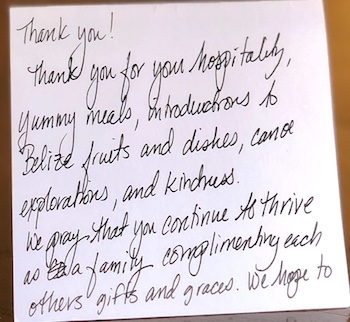 Thank you!
Thank you for your hospitality,
yummy meals, introductions to
Belize fruits and dishes, canoe
explorations, and kindness.
We pray that you continue to thrive
as a family complimenting each
others gifts and graces. We hope to